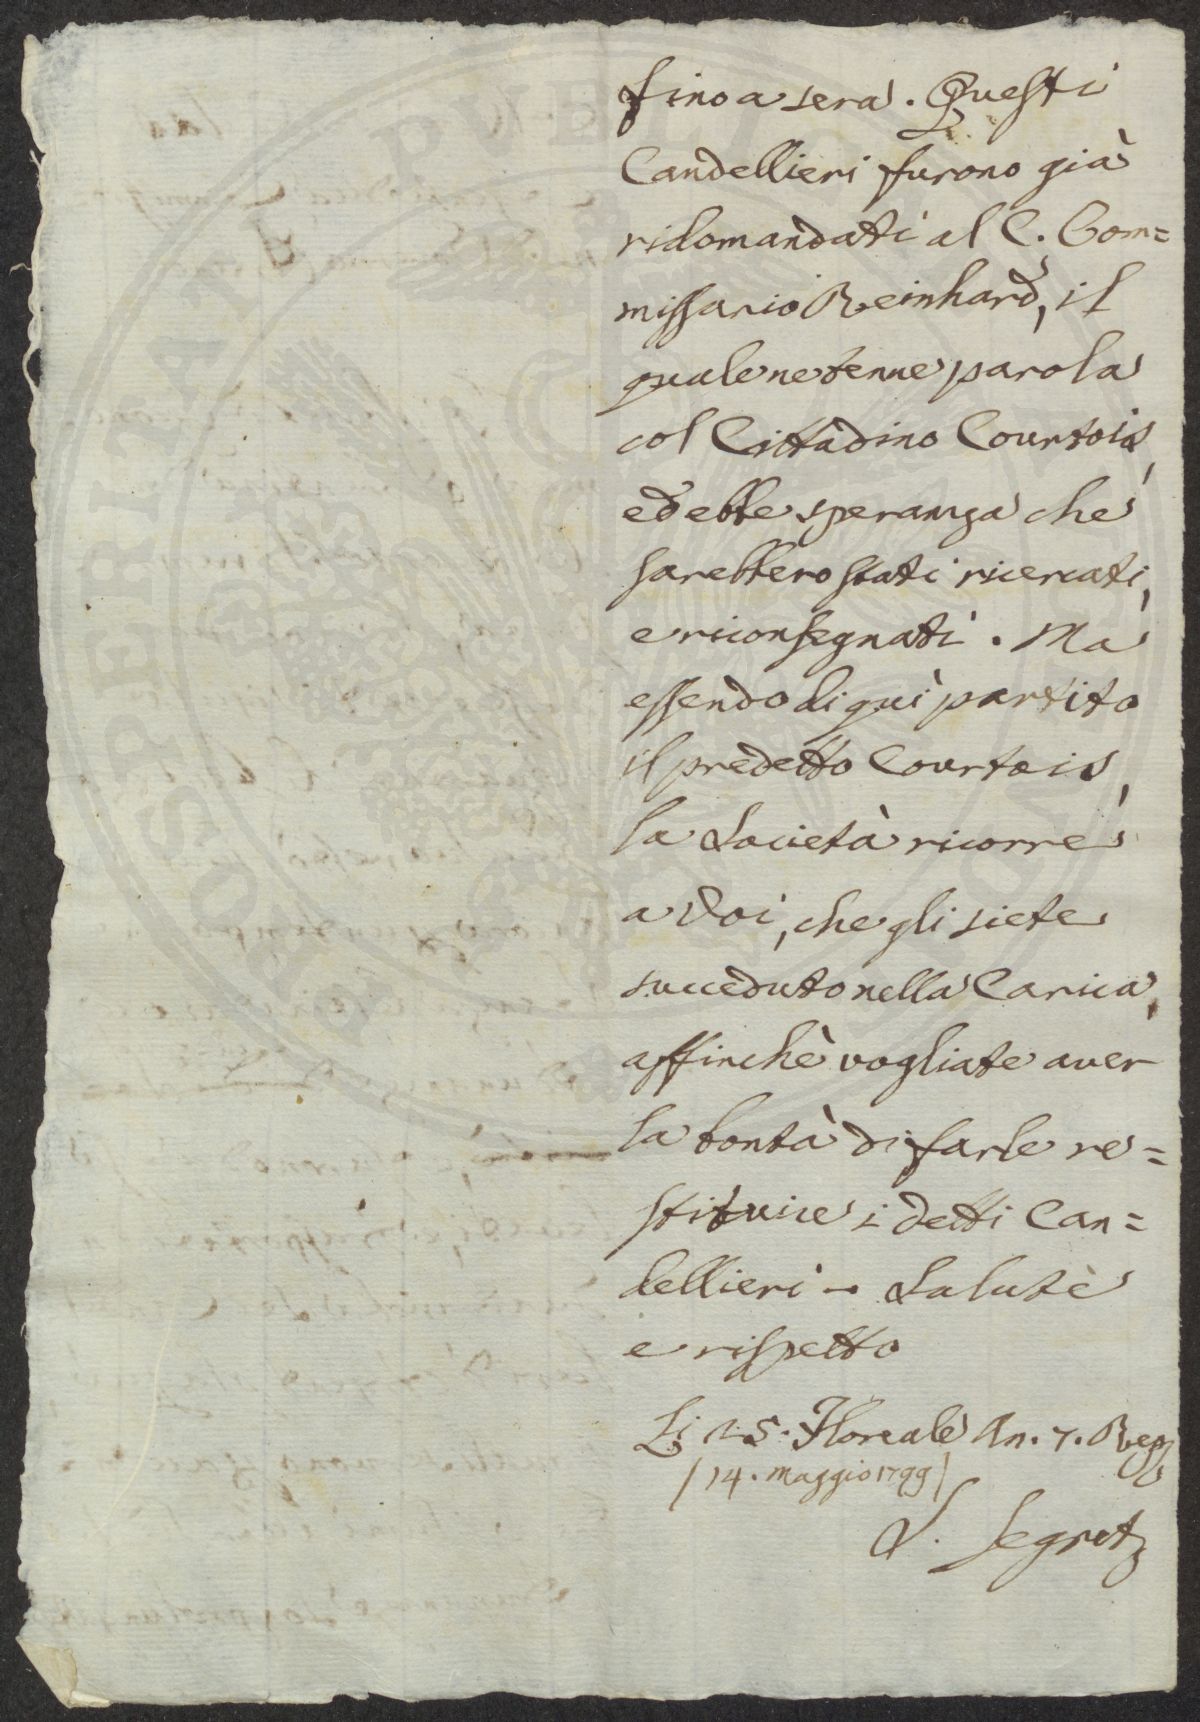 fino a sera. Questi
Candellieri furono già
ridomandati al C. Com=
missario Reinhard, il
quale ne tenne parola
col Cittadino Courtois,
ed ebbe speranza che
sarebbero stati ricercati,
e riconsegnati. Ma
essendo di quì partito
il predetto Courtois,
la Società ricorre
a Voi, che gli siete
succeduto nella Carica,
affinchè vogliate aver
la bontà di farle re=
stituire i detti Can=
dellieri. Salute
e rispetto
Li 25. Floreale An. 7. Repp
(14. Maggio 1799)
S. Segret